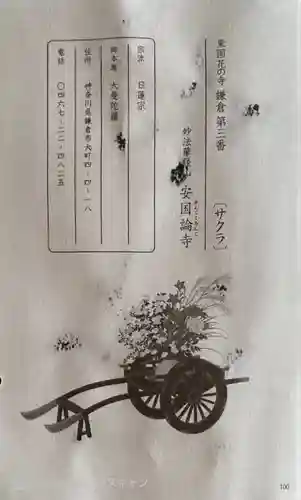 東国花の寺 鎌倉 第三番
〔サクラ〕
妙法華経山 安国論寺
あんこくろんじ
宗派 日蓮宗
御本尊 大曼陀羅
住所 神奈川県鎌倉市大町四-四-一八
電話 〇四六七-二二-四八二五
100